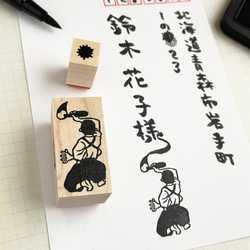 北海道青森市岩手町
1の23
鈴木花子様